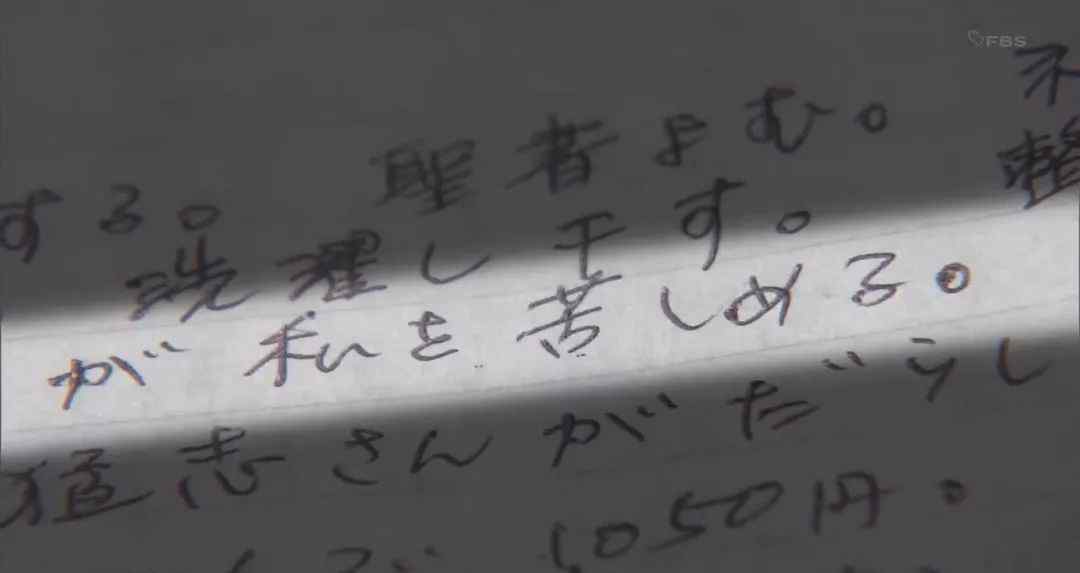 FBS
する。 聖者よむ。 不
洗濯し干す。 整
が私を苦しめる。
猛志さんがだうし
1050円。